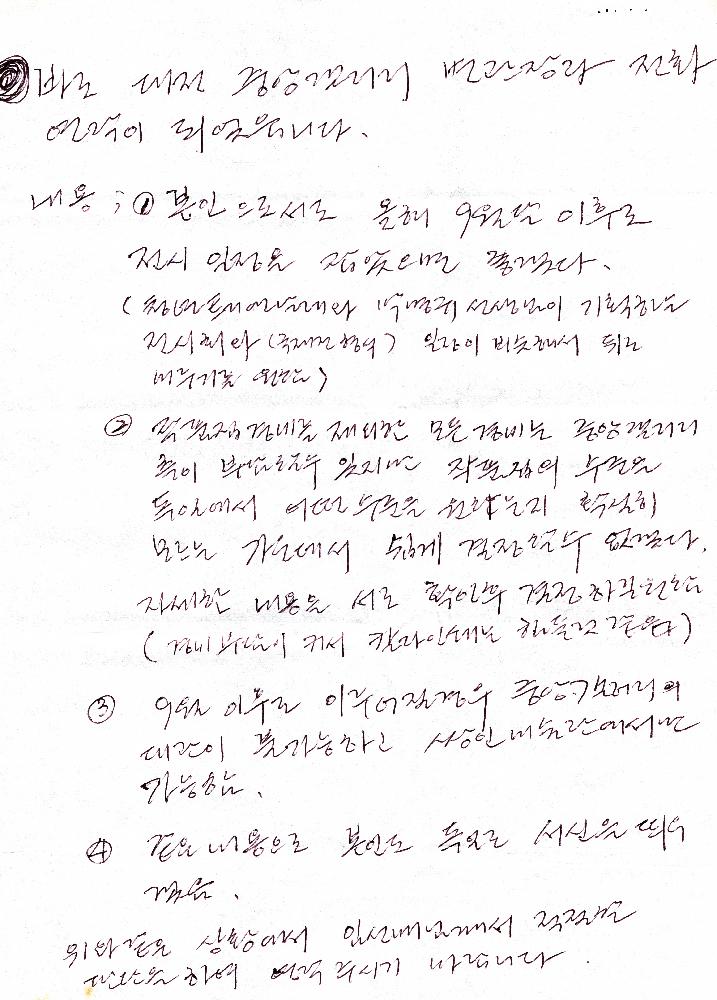 바로 대전 중앙갤러리 변관장과 전화
연락이 되었읍니다.
내용 ; ① 본인으로서도 올해 9월달 이후로
전시 일정을 잡았으면 좋겠다.
( 와 선생님이 기획하는
전시회와 (국제전형식) 일정이 비슷해서 뒤로
미루기를 원함)
② 작품점경비를 제외한 모든 경비는 중앙갤러리
측이 부담할수 있지만 작품점의 수준은
독일에서 어떤 수준을 원하는지 확실히
모르는 가운데서 쉽게 결정할수 없겠다.
자세한 내용을 서로 확인후 결정하길 원함
(경비 부담이 커서 는 힘들것 같음)
③ 9월 이후로 이루어질경우 중앙갤러리의
대관이 불가능하고 에서만
가능함.
④ 같은 내용으로 본인도 독일로 서신을 띄우
겠음.
위와 같은 상황에서 께서 적절한
판단을 하여 연락 주시기 바랍니다.